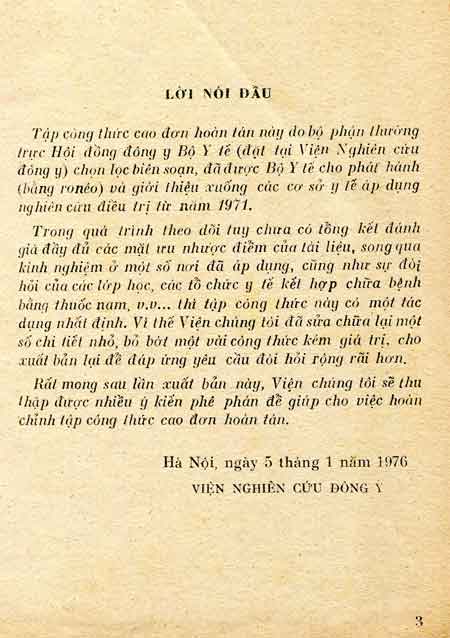 LỜI NÓI ĐẦU
Tập công thức cao đơn hoàn tán này do bộ phận thường
trực Hội đồng đông y Bộ Y tế (đặt tại Viện Nghiên cứu
đông y) chọn lọc biên soạn, đã được Bộ Y tế cho phát hành
(bằng ronéo) và giới thiệu xuống các cơ sở y tế áp dụng
nghiên cứu điều trị từ năm 1971.
Trong quá trình theo dõi tuy chưa có tổng kết đánh
giá đầy đủ các mặt ưu nhược điểm của tài liệu, song qua
kinh nghiệm ở một số nơi đã áp dụng, cũng như sự đòi
hỏi của các lớp học, các tổ chức y tế kết hợp chữa bệnh
bằng thuốc nam, v.v... thì tập công thức này có một tác
dụng nhất định. Vì thế Viện chúng tôi đã sửa chữa lại một
số chi tiết nhỏ, bỏ bớt một vài công thức kém giá trị, cho
xuất bản lại để đáp ứng yêu cầu đòi hỏi rộng rãi hơn.
Rất mong sau lần xuất bản này, Viện chúng tôi sẽ thu
thập được nhiều ý kiến phê phán để giúp cho việc hoàn
chỉnh tập công thức cao đơn hoàn tán.
Hà Nội, ngày 5 tháng 1 năm 1976
VIỆN NGHIÊN CỨU ĐÔNG Y
3